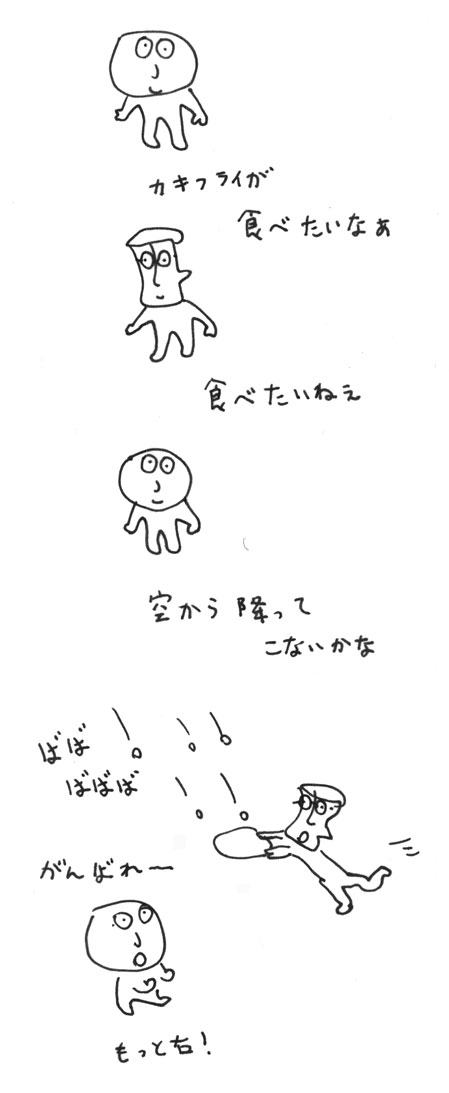 カキフライが
食べたいなぁ
食べたいねぇ
空から降って
こないかな
ばば
ばばば
がんばれー
もっと右!